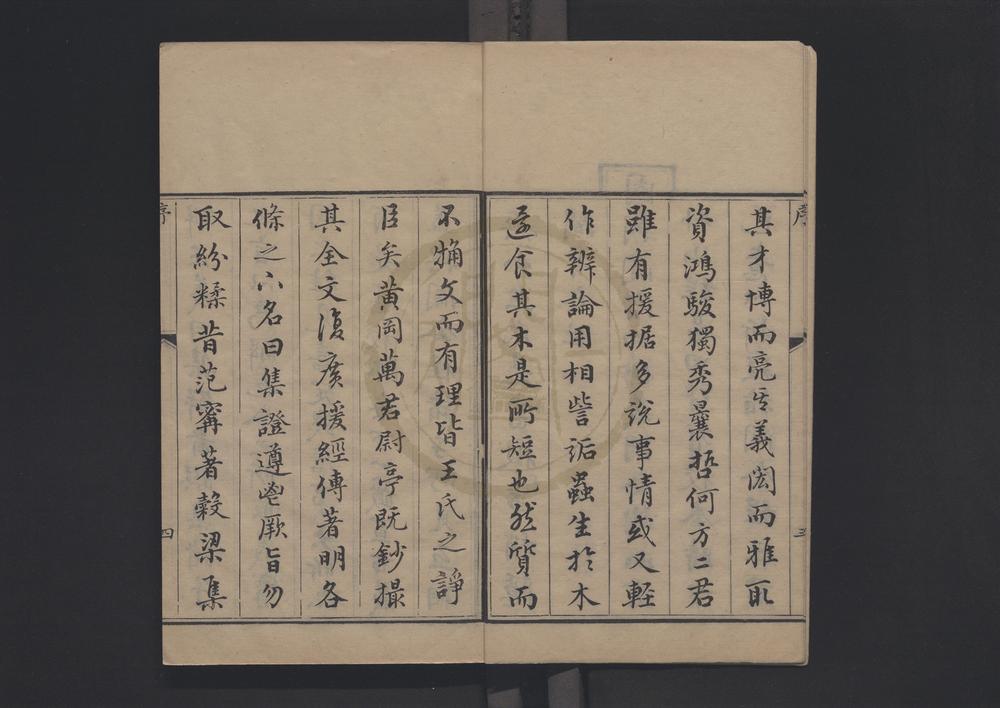 序
三
其才博而亮其義閎而雅取
資鴻駿獨秀曩哲何方二君
雖有援据多説事情或又輕
作辨論用相訾詬蟲生於木
還食其木是所短也然質而
不觕文而有理皆王氏之諍
臣矣黄岡萬君尉亭既鈔撮
其全文復廣援經傳著明各
條之下名曰集證遵厥旨勿
取紛糅昔范甯著穀梁集
序
四